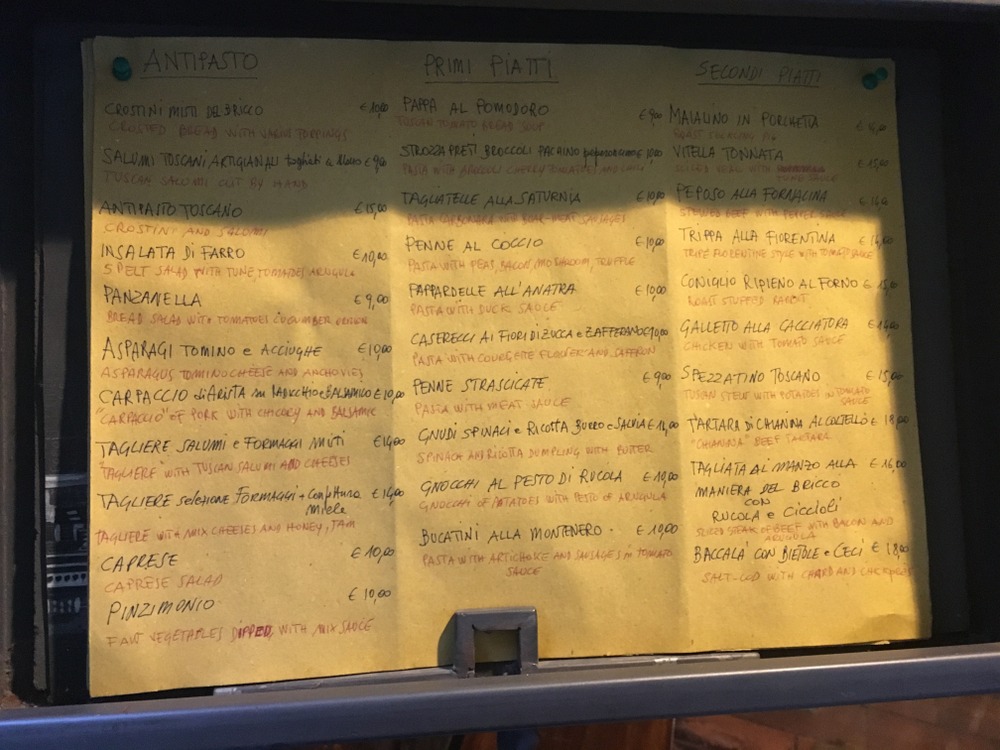 ANTIPASTO
CROSTINI MISTI DEL BRICCO € 10,00
CROSTED BREAD WITH VARIUS TOPPINGS
SALUMI TOSCANI ARTIGIANALI tagliati a Mano € 9,00
TUSCAN SALUMI CUT BY HAND
ANTIPASTO TOSCANO € 15,00
CROSTINI AND SALUMI
INSALATA DI FARRO € 10,00
SPELT SALAD WITH TUNE, TOMATOES ARUGULA
PANZANELLA € 9,00
BREAD SALAD WITH TOMATOES CUCUMBER ONION
ASPARAGI TOMINO e ACCIUGHE € 10,00
ASPARAGUS TOMINO CHEESE AND ANCHOVIES
CARPACCIO di ARISTA in RADICCHIO e BALSAMICO € 10,00
"CARPACCIO" OF PORK WITH CHICORY AND BALSAMIC
TAGLIERE SALUMI e FORMAGGI MISTI € 14,00
"TAGLIERE" WITH TUSCAN SALUMI AND CHEESES
TAGLIERE selezione FORMAGGI + Confettura € 14,00
miele
TAGLIERE WITH MIX CHEESES AND HONEY, JAM
CAPRESE € 10,00
CAPRESE SALAD
PINZIMONIO € 10,00
VEGETABLES DIPPED, WITH MIX SAUCE
PRIMI PIATTI
PAPPA AL POMODORO € 9,00
TUSCAN TOMATO BREAD SOUP
STROZZAPRETI BROCCOLI PACHINO peperoncino € 10,00
PASTA WITH BROCCOLI CHERRY TOMATOES AND CHILI
TAGLIATELLE ALLA SATURNIA € 10,00
PASTA CARBONARA WITH BOAR-MEAT SAUSAGES
PENNE AL COCCIO € 10,00
PASTA WITH PEAS, BACON, MUSHROOM, TRUFFLE
PAPPARDELLE ALL'ANATRA € 10,00
PASTA WITH DUCK SAUCE
CASERECCI AI FIORI DI ZUCCA e ZAFFERANO € 10,00
PASTA WITH COURGETTE FLOWER AND SAFFRON
PENNE STRASCICATE € 9,00
PASTA WITH MEAT SAUCE
GNUDI SPINACI e RICOTTA BURRO e SALVIA €
SPINACH AND RICOTTA DUMPLING WITH BUTTER
GNOCCHI AL PESTO DI RUCOLA € 10,00
GNOCCHI OF POTATOES WITH PESTO OF ARUGULA
BUCATINI ALLA MONTENERO € 10,00
PASTA WITH ARTICHOKE AND SAUSAGES in TOMATO
SAUCE
SECONDI PIATTI
MAIALINO IN PORCHETTA €
ROAST PIG
VITELLA TONNATA € 15,00
SLICED VEAL WITH TUNE SAUCE
PEPOSO ALLA FORNACINA €
STEWED BEEF WITH PEPPER SAUCE
TRIPPA ALLA FIORENTINA € 14,00
TRIPE FLORENTINE STYLE WITH TOMATO SAUCE
CONIGLIO RIPIENO AL FORNO € 15,00
ROAST STUFFED RABBIT
GALLETTO ALLA CACCIATORA € 14,00
CHICKEN WITH TOMATO SAUCE
SPEZZATINO TOSCANO € 15,00
TUSCAN STEW WITH POTATOES IN TOMATO
SAUCE
TARTARA DI CHIANINA AL COLTELLO € 18,00
"CHIANINA" BEEF TARTARA
TAGLIATA di MANZO ALLA € 16,00
MANIERA DEL BRICCO
CON
RUCOLA e CICCIOLI
SLICED STEAK OF BEEF WITH BACON AND
ARUGULA
BACCALÀ CON BIETOLE e CECI € 18,00
SALT-COD WITH CHARD AND CHICKPEAS